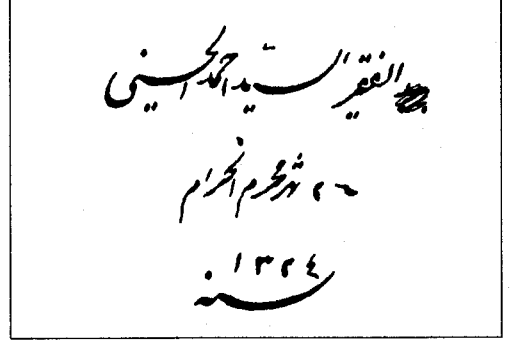 الفقير السيد احمد الحسيني
شهر محرم الحرام
سنه ١٣٢٤